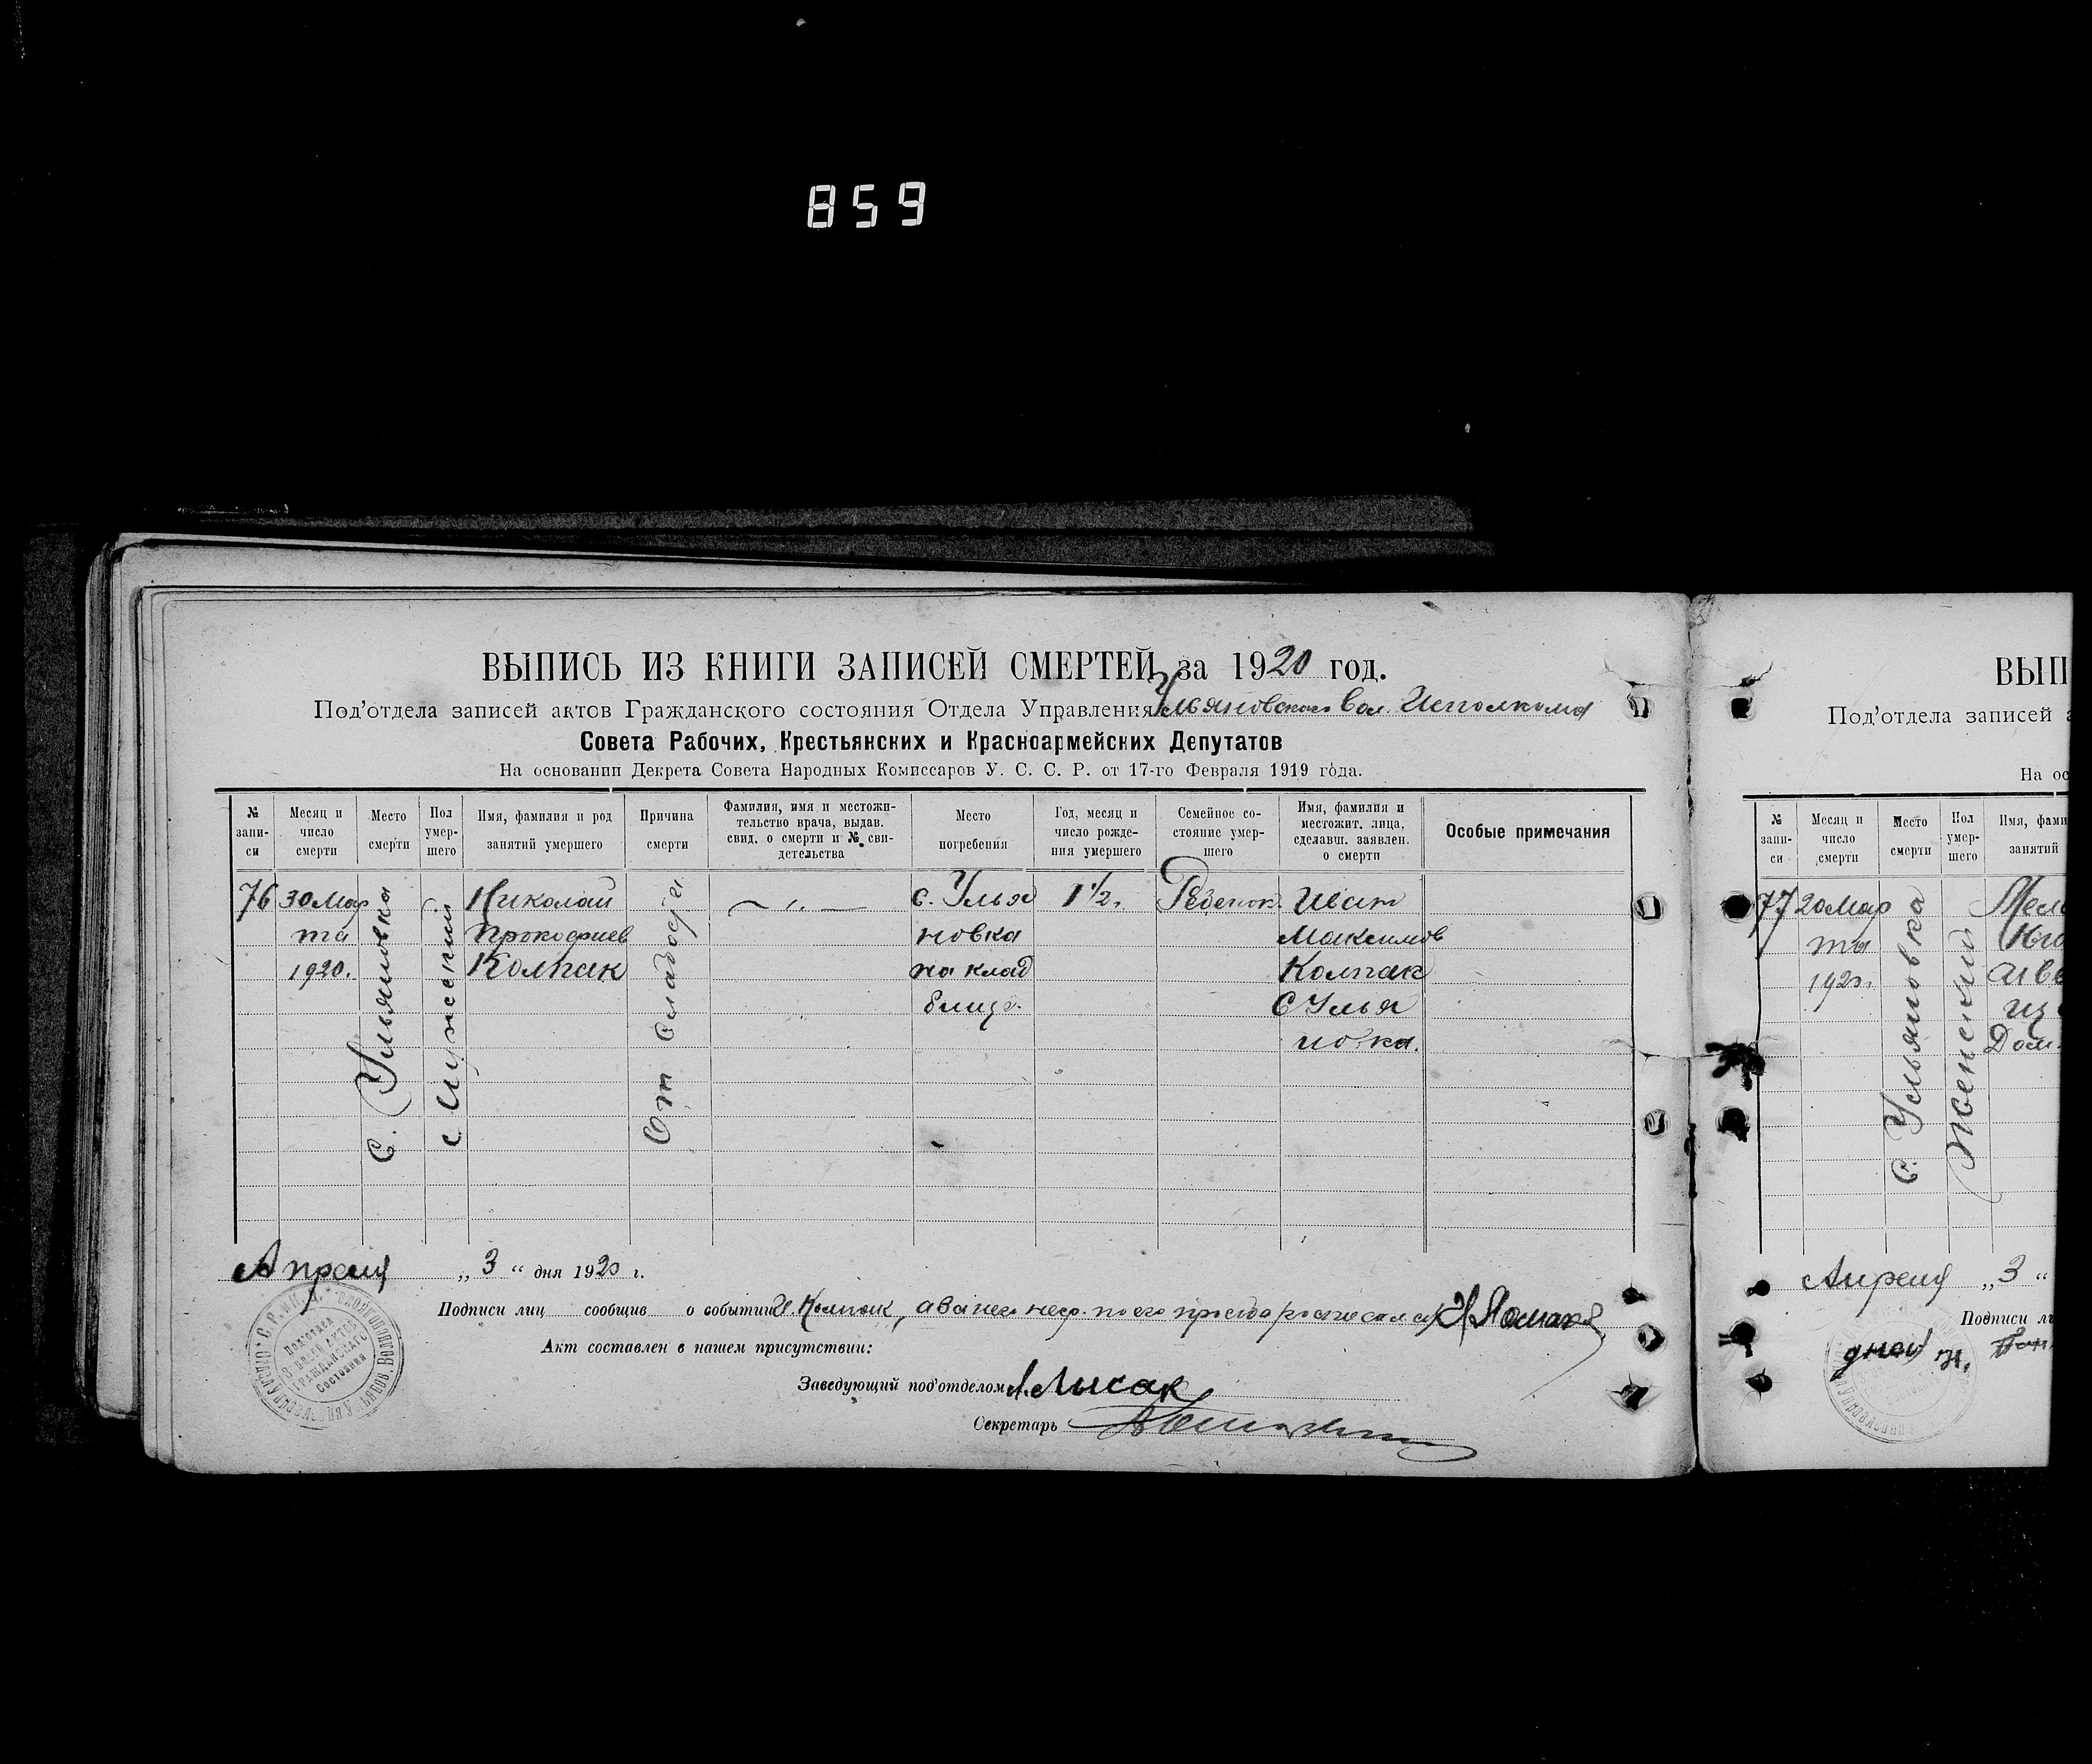 859
ВЫПИСЬ ИЗ КНИГИ ЗАПИСЕЙ СМЕРТЕЙ за 1920 год.
Под'отдела записей актов Гражданского состояния Отдела Управления Ульяновского Вол. Исполкома
Совета Рабочих, Крестьянских и Красноармейских Депутатов
На основании Декрета Совета Народных Комиссаров У. С. С. Р. от 17-го Февраля 1919 года.
№ запи-си
Месяц и число смерти
Место смерти
Пол умер-шего
Имя, фамилия и род занятий умершего
Причина смерти
Фамилия, имя и местожи-тельство врача, выдав. свид. о смерти и № сви-детельства
Место погребения
Год, месяц и число рожде-ния умершего
Семейное со-стояние умер-шего
Имя, фамилия и местожит. лица, сделавш. заявлен. о смерти
Особые примечания
76
30 Мар
та
1920.
с. Ульяновка
Мужский
Николай
Прокофиев
Колпак
От
— „ —
с. Улья
новка
на клад
бище.
1 1/2.
Ребенок.
Иван
Максимов
Колпак
С Улья
новка.
Апреля „ 3 “ дня 1920 г.
Подписи лиц сообщив о событии И. Колпак, а за него негр. по его просьбе росписался
Акт составлен в нашем присутствии:
Заведующий под'отделом Лысак
Секретарь
Подотдел
Записи актов
Гражданского
Состояния
ВЫП
Под'отдела записей а
На ос
№ запи-си
Месяц и число смерти
Место смерти
Пол умер-шего
Имя, фами
занятий
77
20 Мар
та
1920.
с. Ульяновка
Женский
Дом.
Апреля „ 3 “
Подписи ли